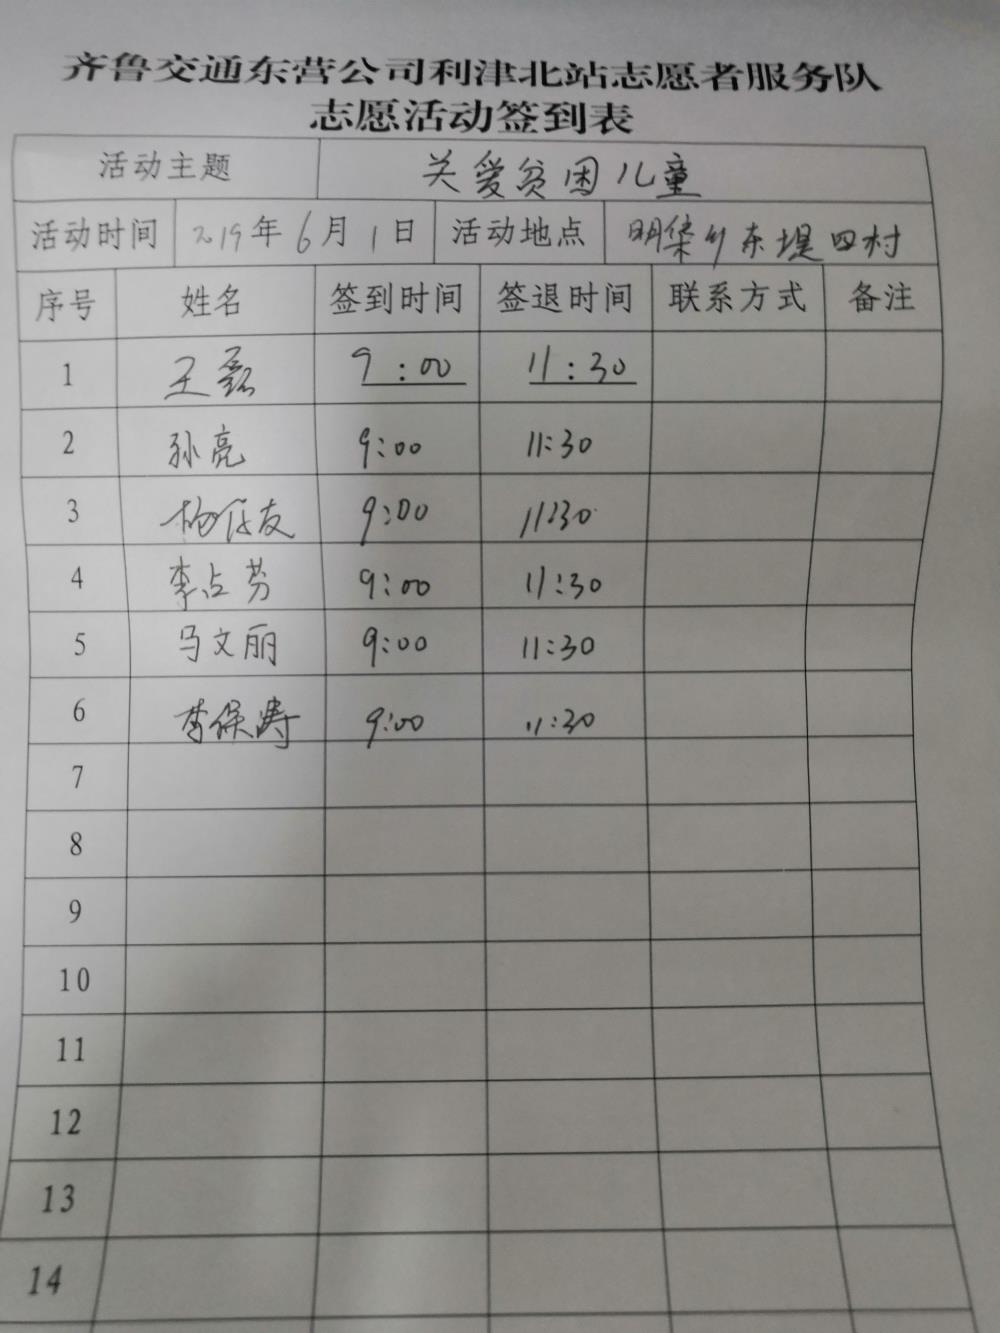 齐鲁交通东营公司利津北站志愿者服务队
志愿活动签到表
活动主题 关爱贫困儿童
活动时间 2019年6月1日 活动地点 明集乡东堤四村
序号 姓名 签到时间 签退时间 联系方式 备注
1 王磊 9:00 11:30
2 孙亮 9:00 11:30
3 杨仔友 9:00 11:30
4 李占芳 9:00 11:30
5 马文丽 9:00 11:30
6 李保涛 9:00 11:30
7
8
9
10
11
12
13
14